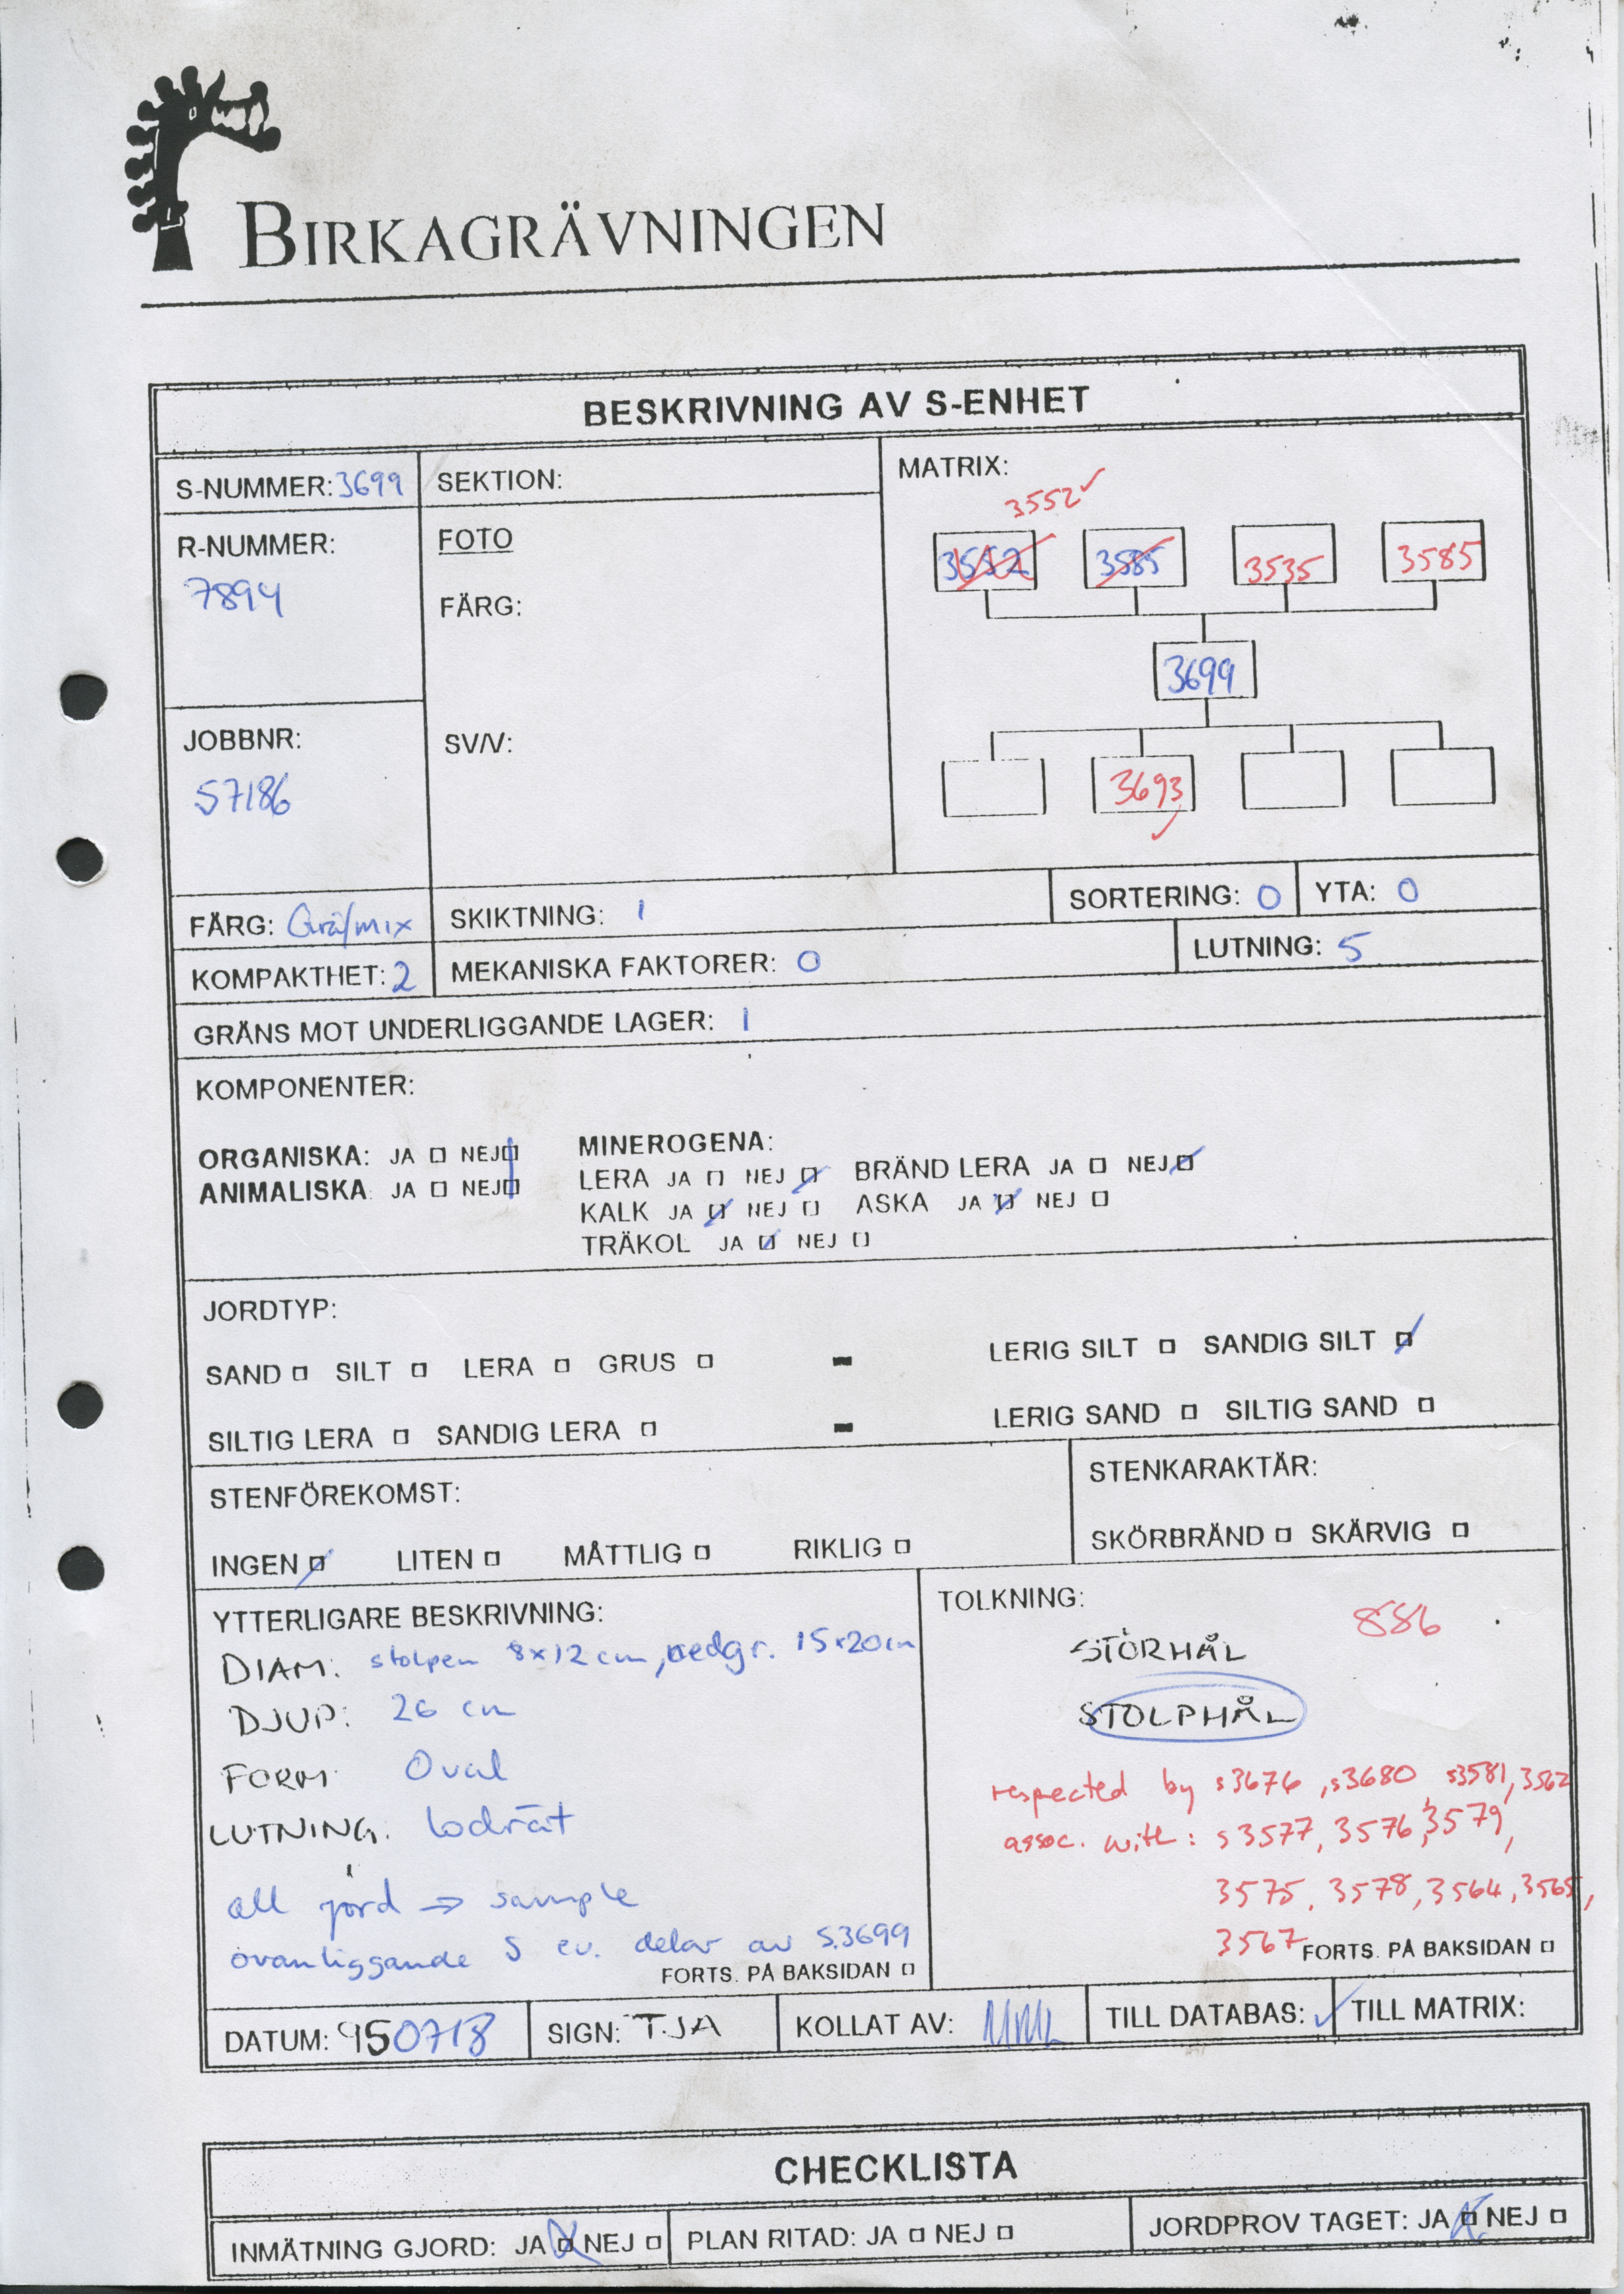 BIRKAGRÄVNINGEN
BESKRIVNING AV S-ENHET
S-NUMMER: 3699
SEKTION:
MATRIX:
3552 ✓
R-NUMMER:
7894
FOTO
FÄRG:
SV/V:
3552 3585 3535 3585
3699
3693 ✓
JOBBNR:
57186
FÄRG: Grå/mix
SKIKTNING: 1
SORTERING: 0
YTA: 0
KOMPAKTHET: 2
MEKANISKA FAKTORER: 0
LUTNING: 5
GRÄNS MOT UNDERLIGGANDE LAGER: 1
KOMPONENTER:
ORGANISKA: JA NEJ
ANIMALISKA: JA NEJ
MINEROGENA:
LERA JA NEJ BRÄND LERA JA NEJ
KALK JA NEJ ASKA JA NEJ
TRÄKOL JA NEJ
JORDTYP:
SAND SILT LERA GRUS - LERIG SILT SANDIG SILT
SILTIG LERA SANDIG LERA - LERIG SAND SILTIG SAND
STENFÖREKOMST:
INGEN LITEN MÅTTLIG RIKLIG
STENKARAKTÄR:
SKÖRBRÄND SKÄRVIG
YTTERLIGARE BESKRIVNING:
DIAM: stolpen 8x12 cm, nedgr. 15x20cm
DJUP: 26 cm
FORM: Oval
LUTNING: Lodrät
all jord → sample
ovanliggande S ev. delar av S.3699
FORTS. PÅ BAKSIDAN
TOLKNING:
886
STÖRHÅL
STOLPHÅL
respected by s3676, s3680, s3581, 3562
assoc. with: s3577, 3576, 3579,
3575, 3578, 3564, 3565,
3567
FORTS. PÅ BAKSIDAN
DATUM: 950718
SIGN: TJA
KOLLAT AV:
TILL DATABAS: ✓
TILL MATRIX:
CHECKLISTA
INMÄTNING GJORD: JA NEJ
PLAN RITAD: JA NEJ
JORDPROV TAGET: JA NEJ